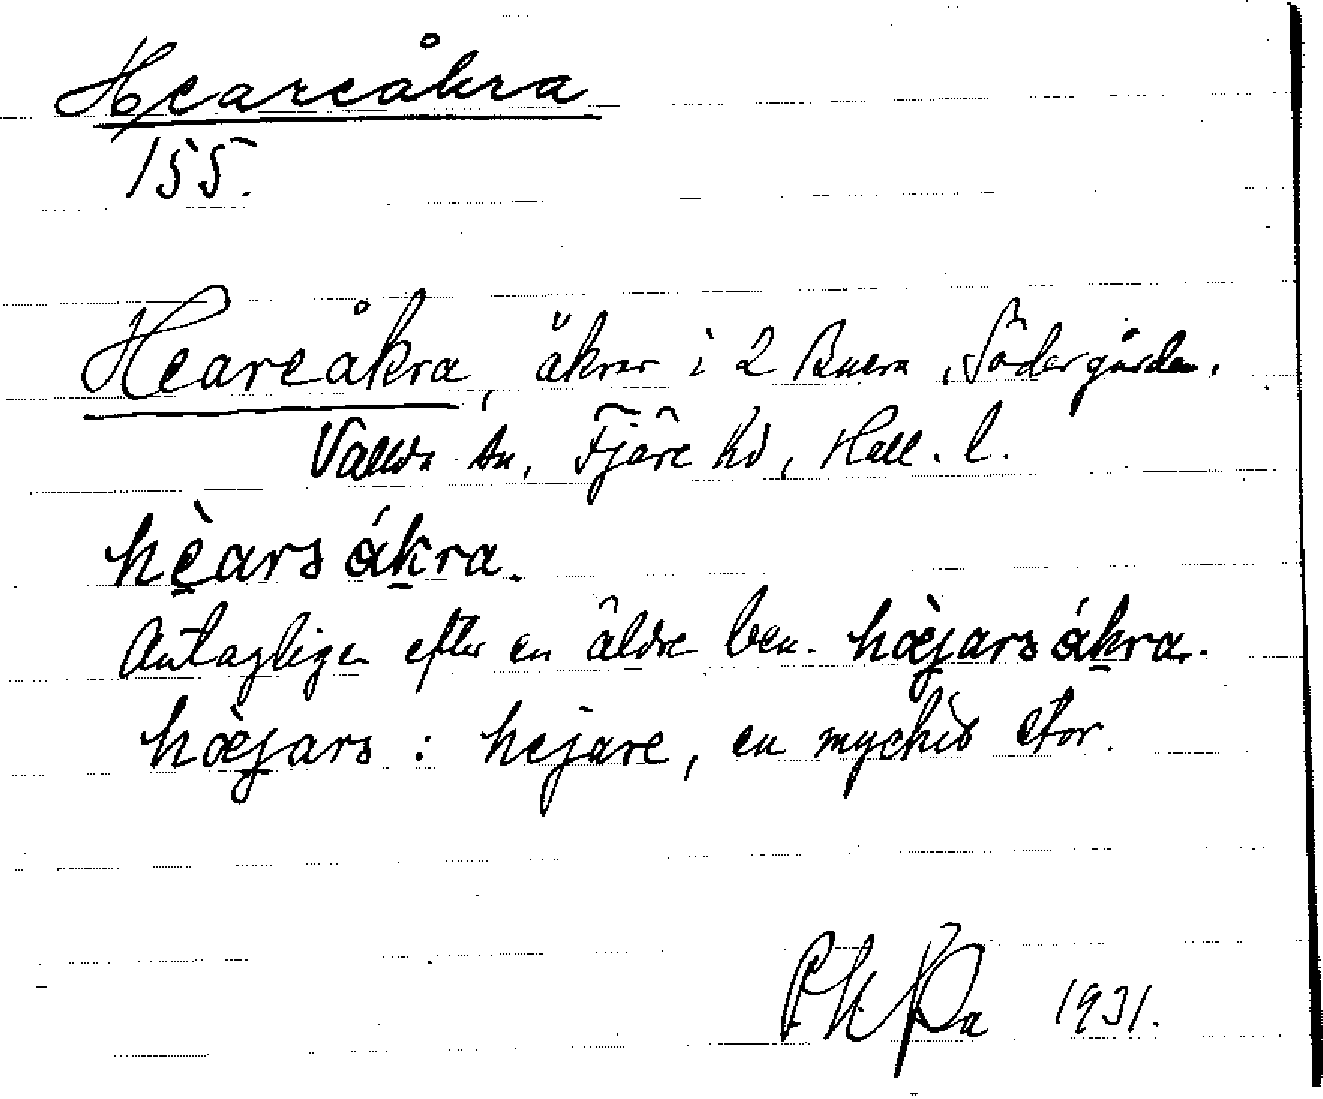 Heareåkra
155.
Heareåkra, åkrar i 2 Buera, Södergården,
Vallda sn, Fjäre hd, Hall. l.
hèarsákra.
Antagligen efter en äldre ben. hæ̀jarsákra.
hæ̀jars : hejare, en mycket stor.
1931.